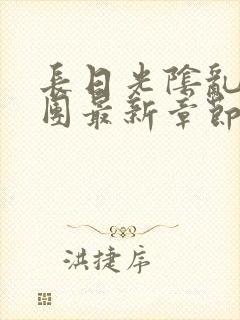 長日光陰亂
園最新章節
洪捷序